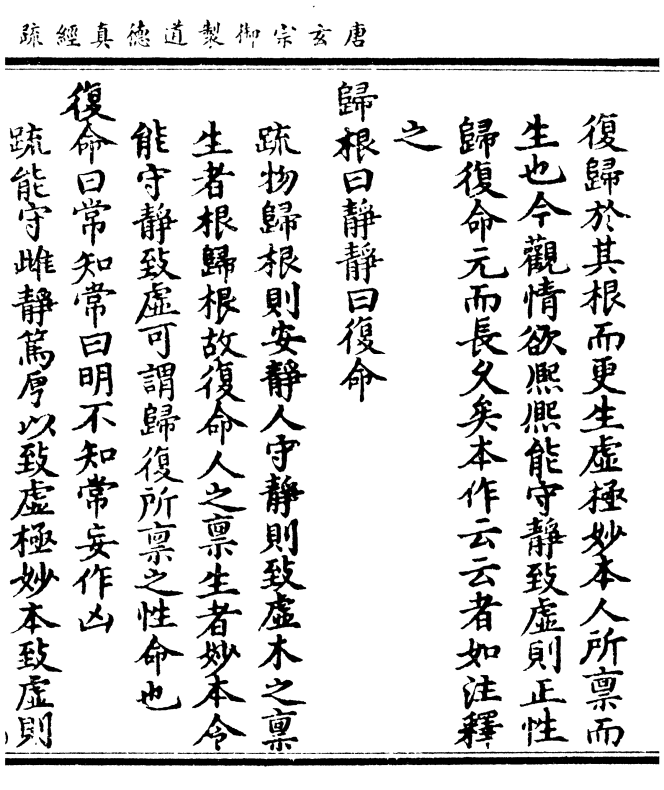 唐玄宗御製道德真經疏
復歸於其根而更生虛極妙本人所禀而
生也今觀情欲熙熙能守靜致虛則正性
歸復命元而長久矣本作云云者如注釋
之
歸根曰靜靜曰復命
疏物歸根則安靜人守靜則致虛木之禀
生者根歸根故復命人之禀生者妙本今
能守靜致虛可謂歸復所禀之性命也
復命曰常知常曰明不知常妄作凶
疏能守雌靜篤厚以致虛極妙本致虛則